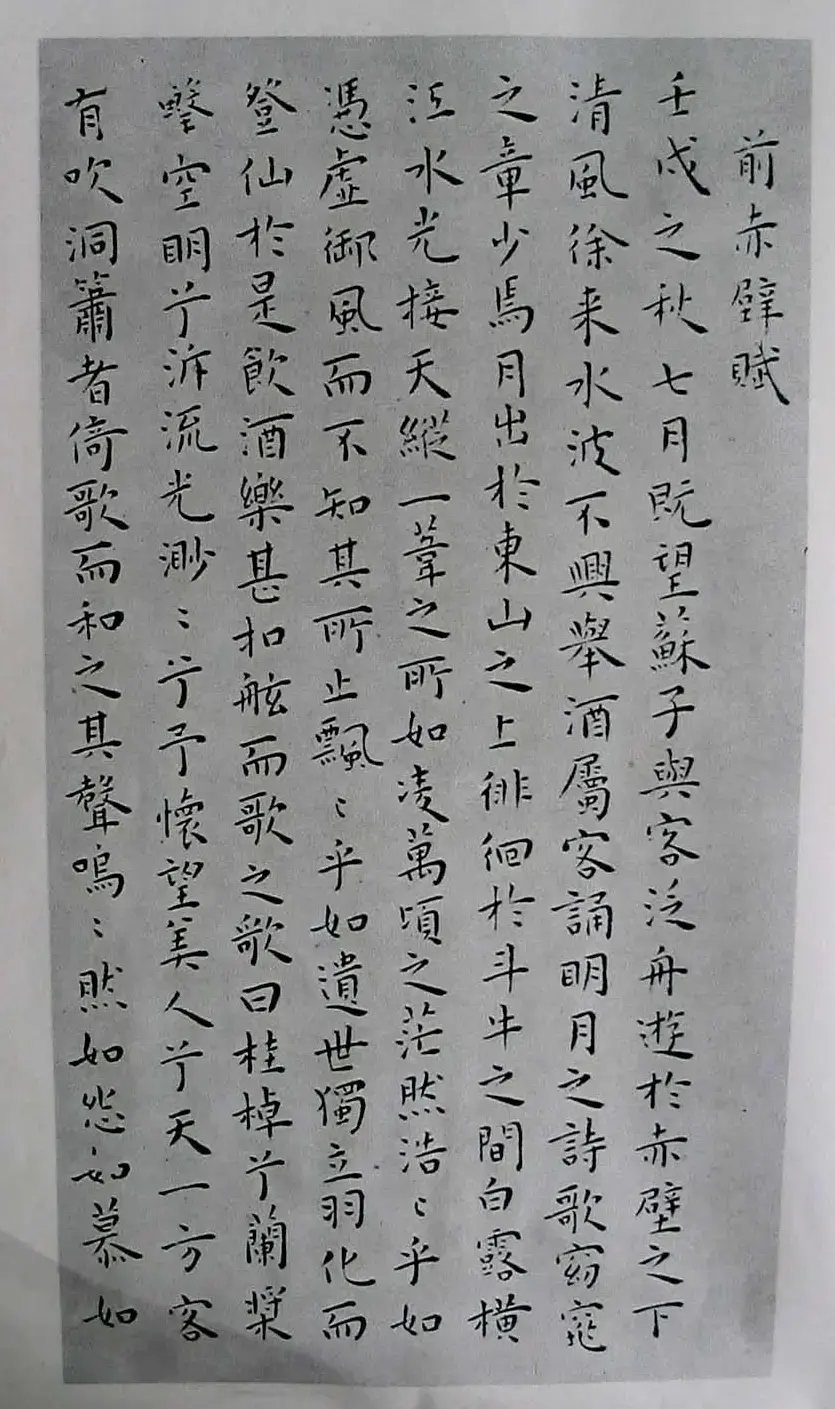 前赤壁賦
壬戌之秋七月既望蘇子與客泛舟遊於赤壁之下
清風徐来水波不興舉酒屬客誦明月之詩歌窈窕
之章少焉月出於東山之上徘徊於斗牛之間白露橫
江水光接天縱一葦之所如凌萬頃之茫然浩〻乎如
馮虛御風而不知其所止飄〻乎如遺世獨立羽化而
登仙於是飲酒樂甚扣舷而歌之歌曰桂棹兮蘭槳
擊空明兮泝流光渺〻兮予懷望美人兮天一方客
有吹洞簫者倚歌而和之其聲嗚〻然如怨如慕如